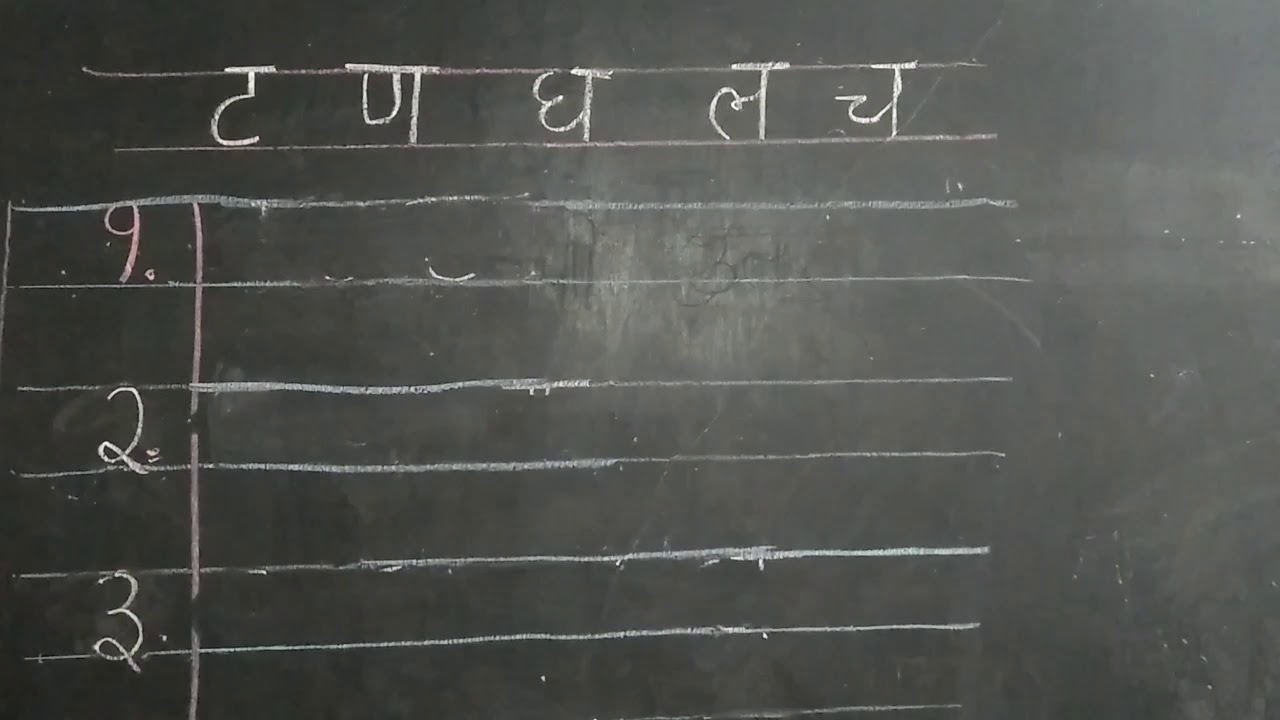 ट ण घ ल च
१.
२.
३.